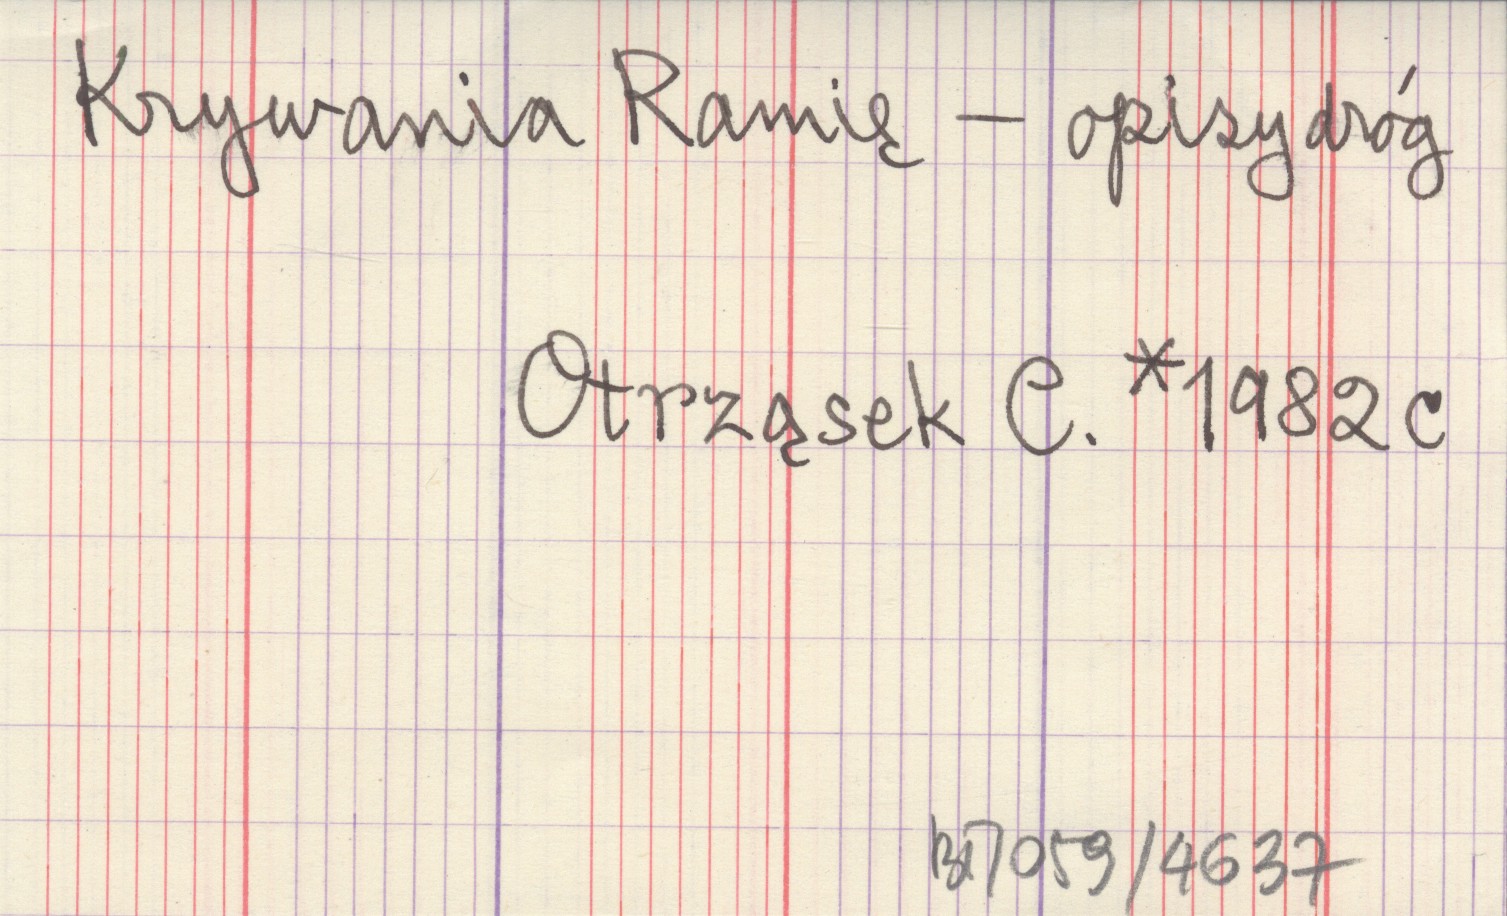 Krywania Ramię — opisy dróg
Otrząsek C. *1982c
059/4637